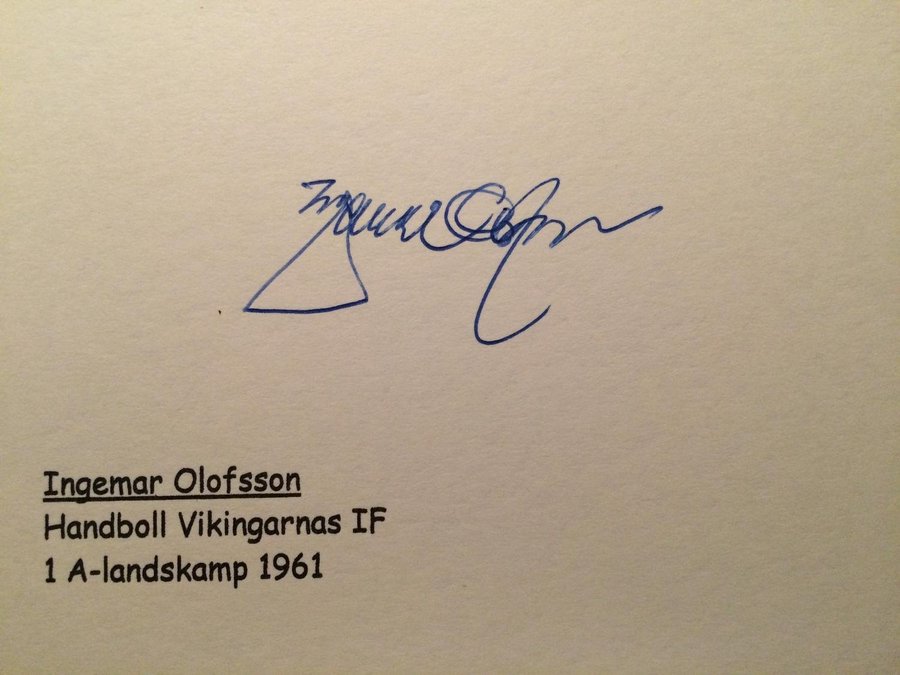 Ingemar Olofsson
Ingemar Olofsson
Handboll Vikingarnas IF
1 A-landskamp 1961